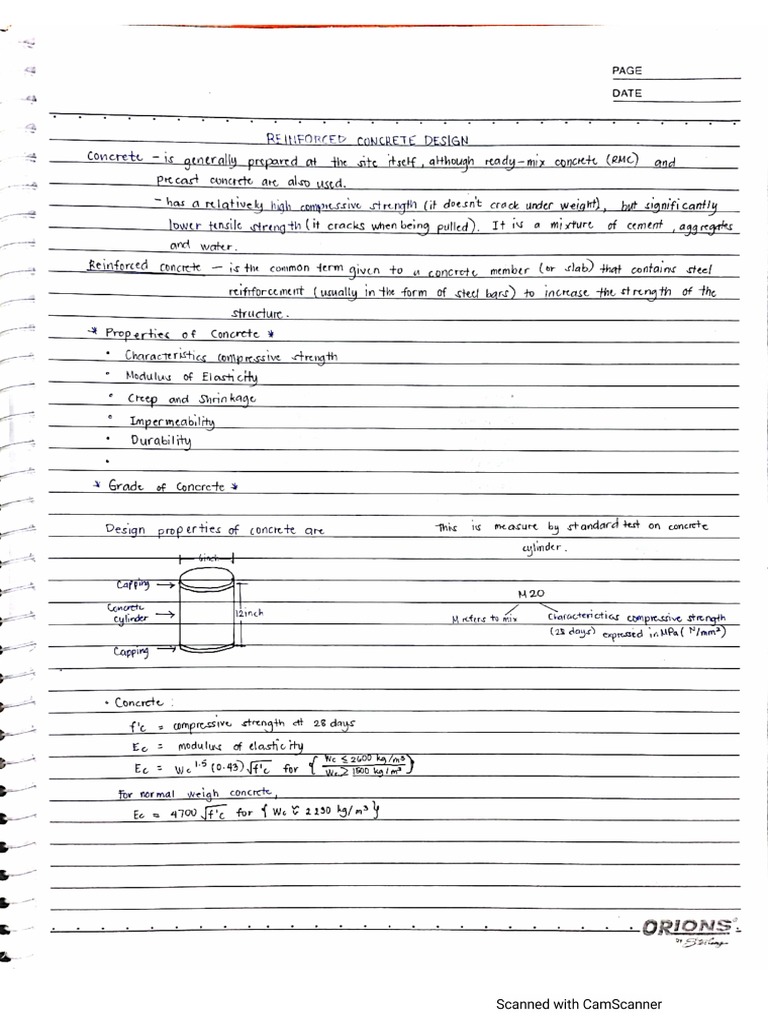 PAGE
DATE
REINFORCED CONCRETE DESIGN
Concrete - is generally prepared at the site itself, although ready-mix concrete (RMC) and
precast concrete are also used.
- has a relatively high compressive strength (it doesn't crack under weight), but significantly
lower tensile strength (it cracks when being pulled). It is a mixture of cement, aggregates
and water.
Reinforced concrete - is the common term given to a concrete member (or slab) that contains steel
reinforcement (usually in the form of steel bars) to increase the strength of the
structure.
* Properties of Concrete *
• Characteristics compressive strength
• Modulus of Elasticity
• Creep and Shrinkage
• Impermeability
• Durability
•
* Grade of Concrete *
Design properties of concrete are
This is measure by standard test on concrete
cylinder.
6inch
Capping →
Concrete
cylinder →
12inch
Capping →
M20
M refers to mix
Characterictics compressive strength
(28 days) expressed in MPa (N/mm²)
• Concrete :
f'c = compressive strength at 28 days
Ec = modulus of elasticity
Ec = Wc^1.5 (0.43) √f'c for { Wc ≤ 2600 kg/m³
Wc ≥ 1500 kg/m³ }
For normal weigh concrete,
Ec = 4700 √f'c for { Wc ≈ 2230 kg/m³ }
ORIONS
Scanned with CamScanner